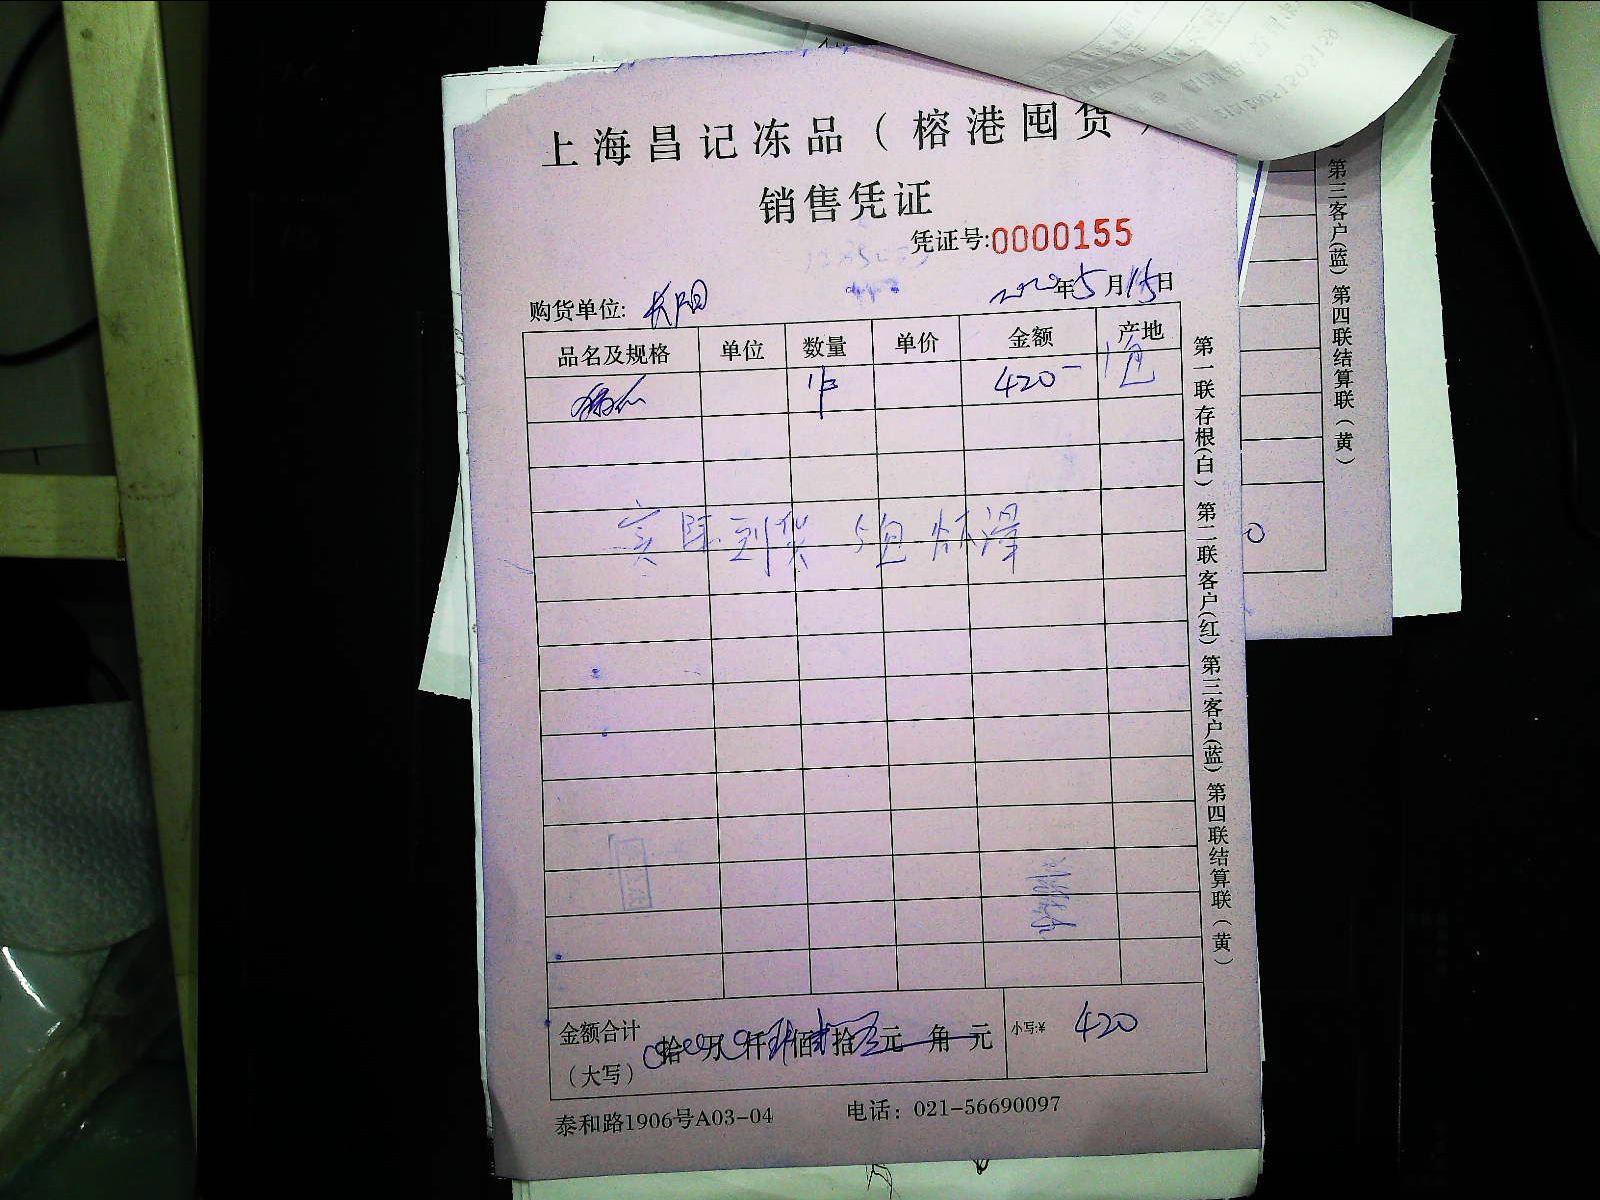 上海昌记冻品（榕港囤货）
销售凭证
凭证号:0000155
购货单位: 长阳 2020年5月15日
品名及规格 单位 数量 单价 金额 产地
420-
实际到货
金额合计
（大写）
拾 万 仟 佰 拾 元 角 元
小写:¥ 420
泰和路1906号A03-04 电话：021-56690097
第一联存根(白) 第二联客户(红) 第三客户(蓝) 第四联结算联（黄）
第三客户(蓝) 第四联结算联（黄）